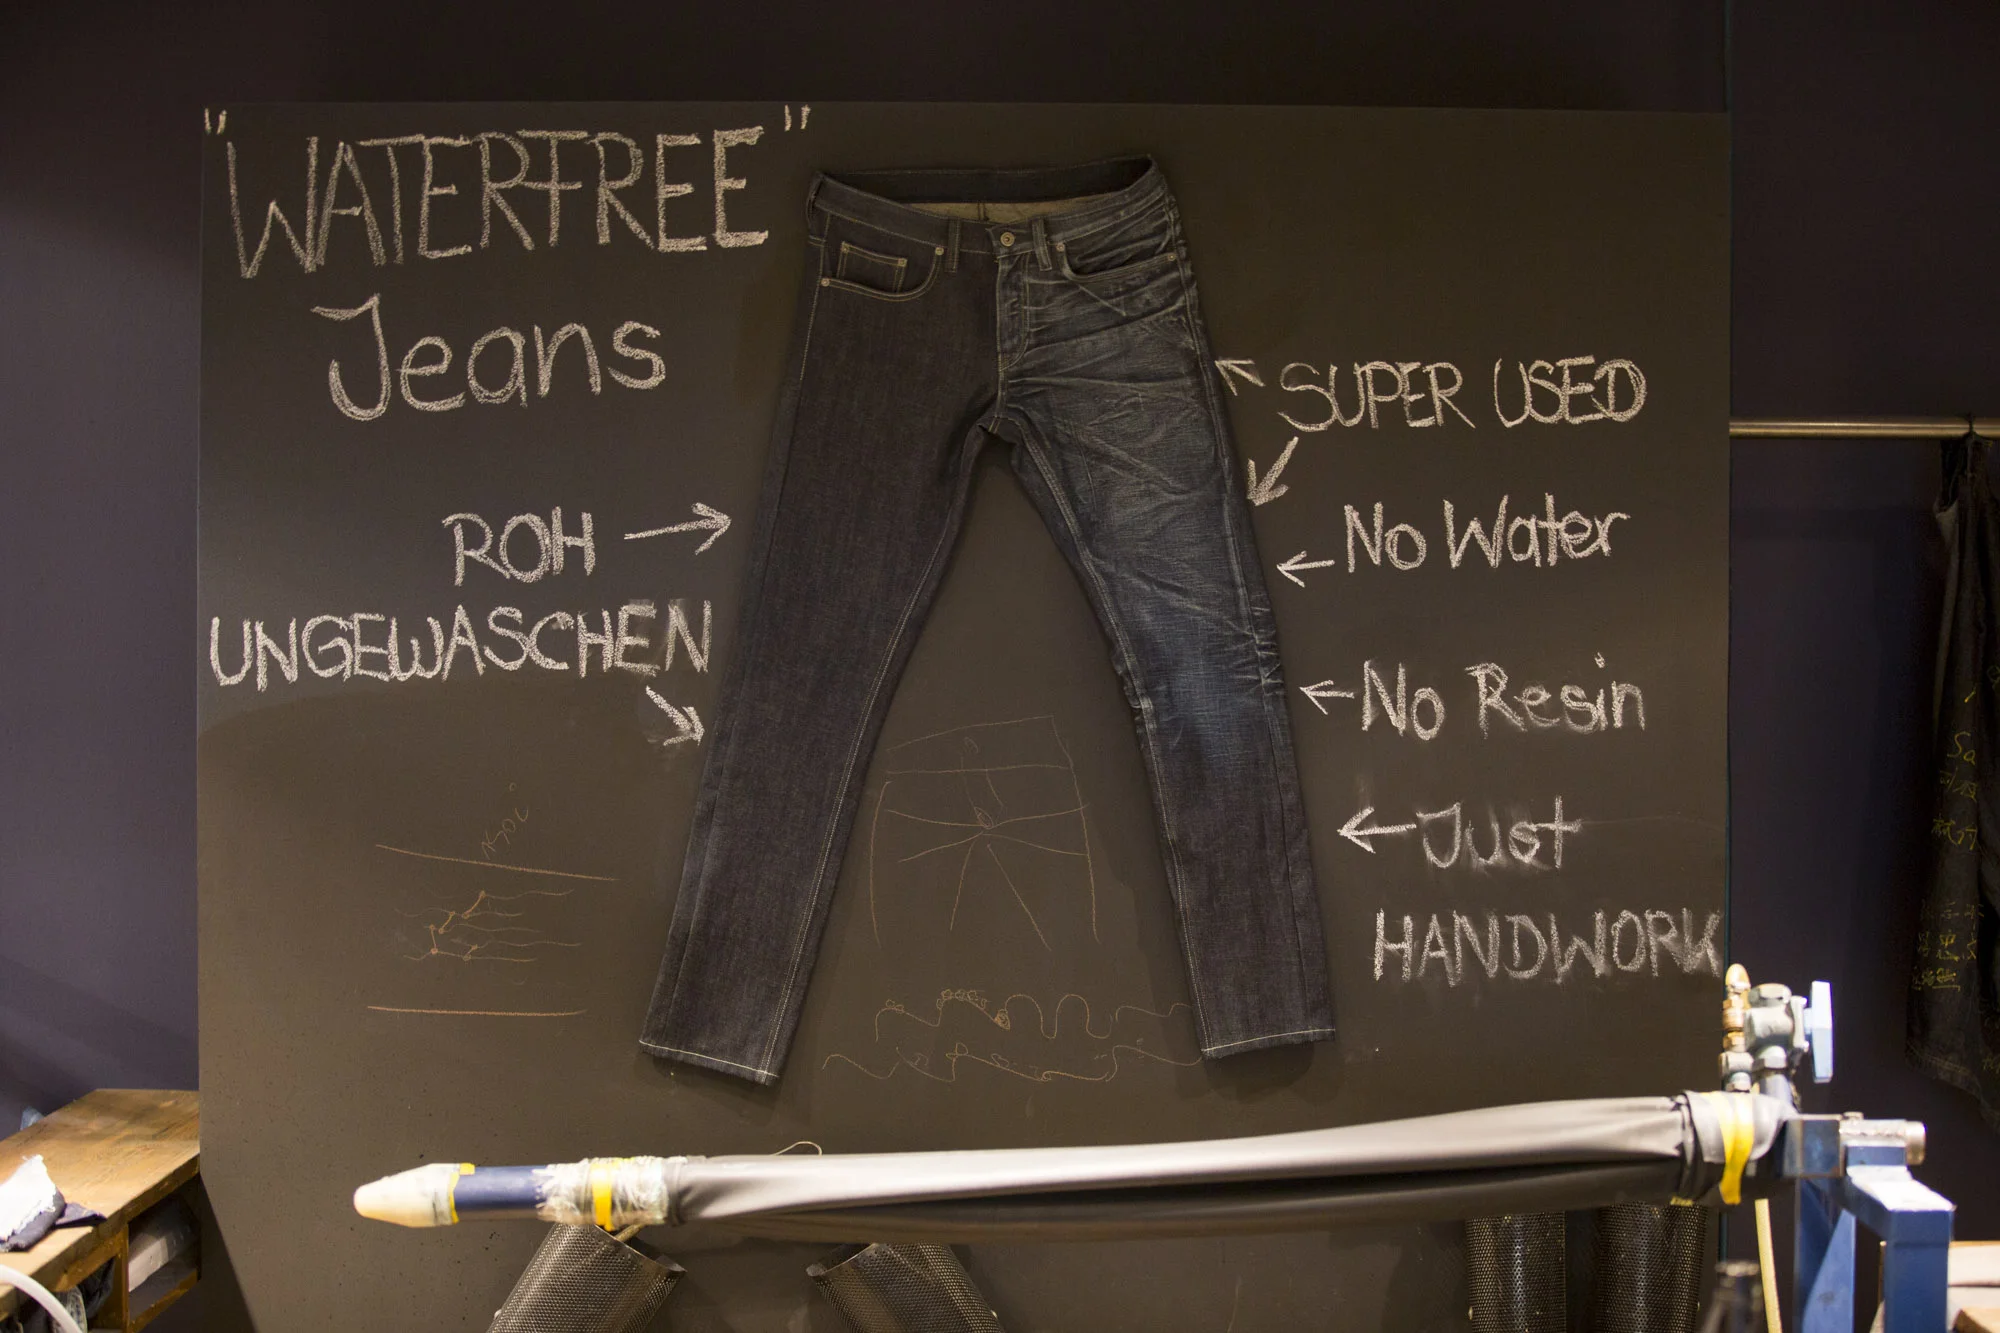 "WATERFREE"
Jeans
ROH
UNGEWASCHEN
SUPER USED
No Water
No Resin
Just
HANDWORK